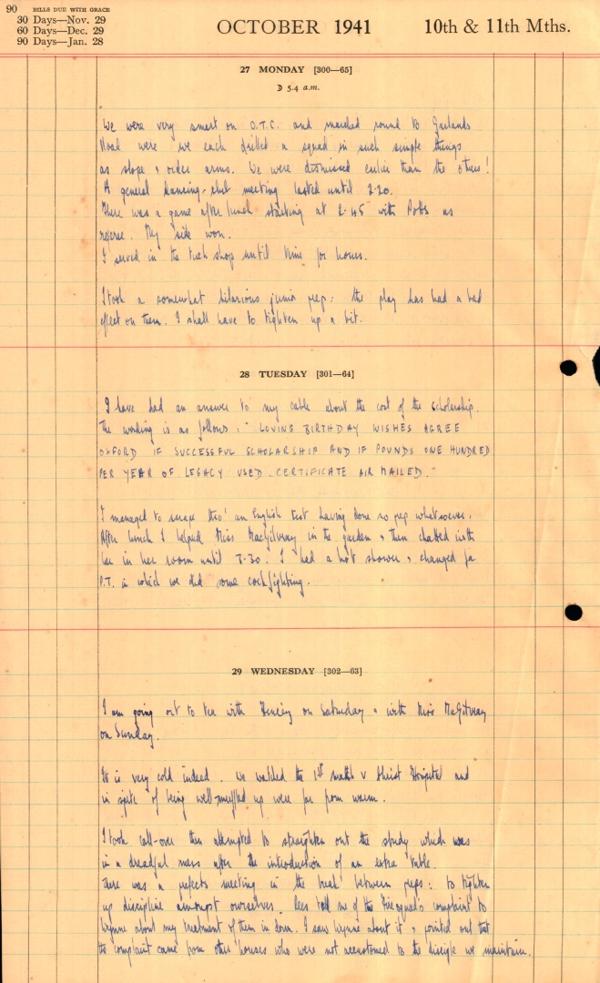 90 BILLS DUE WITH GRACE
30 Days—Nov. 29
60 Days—Dec. 29
90 Days—Jan. 28
OCTOBER 1941
10th & 11th Mths.
27 MONDAY [300—65]
5.4 a.m.
We were very smart on O.T.C. and marched round to Garlands
Road were we each drilled a squad in such simple things
as slope & order arms. We were dismissed earlier than the others!
A general dancing-club meeting lasted until 2.20.
There was a game after lunch starting at 2.45 with Potts as
referee. My side won.
I served in the tuck shop until Nine for hours.
I took a somewhat hilarious junior prep: the play has had a bad
effect on them. I shall have to tighten up a bit.
28 TUESDAY [301—64]
I have had an answer to my cable about the cost of the scholarship.
The wording is as follows: "LOVING BIRTHDAY WISHES AGREE
OXFORD IF SUCCESSFUL SCHOLARSHIP AND IF POUNDS ONE HUNDRED
PER YEAR OF LEGACY USED. CERTIFICATE AIR MAILED."
I managed to scrape thro' an English test having done no prep whatsoever.
After lunch I helped Miss MacGilvray in the garden & then chatted with
her in her room until 3.30. I had a hot shower & changed for
P.T. in which we did some cockfighting.
29 WEDNESDAY [302—63]
I am going out to tea with on Saturday & with Miss McGilvray
on Sunday.
It is very cold indeed. We watched the 1st match v Christ Hospital and
in spite of being well-muffled up were far from warm.
I took call-over then attempted to straighten out the study which was
in a dreadful mess after the introduction of an extra table.
There was a prefects meeting in the break between preps: to tighten
up discipline amongst ourselves. Lees told me of the complaint to
Wynne about my treatment of them in dorm. I saw Wynne about it & pointed out that
the complaint came from other houses who were not accustomed to the discipline we maintain.